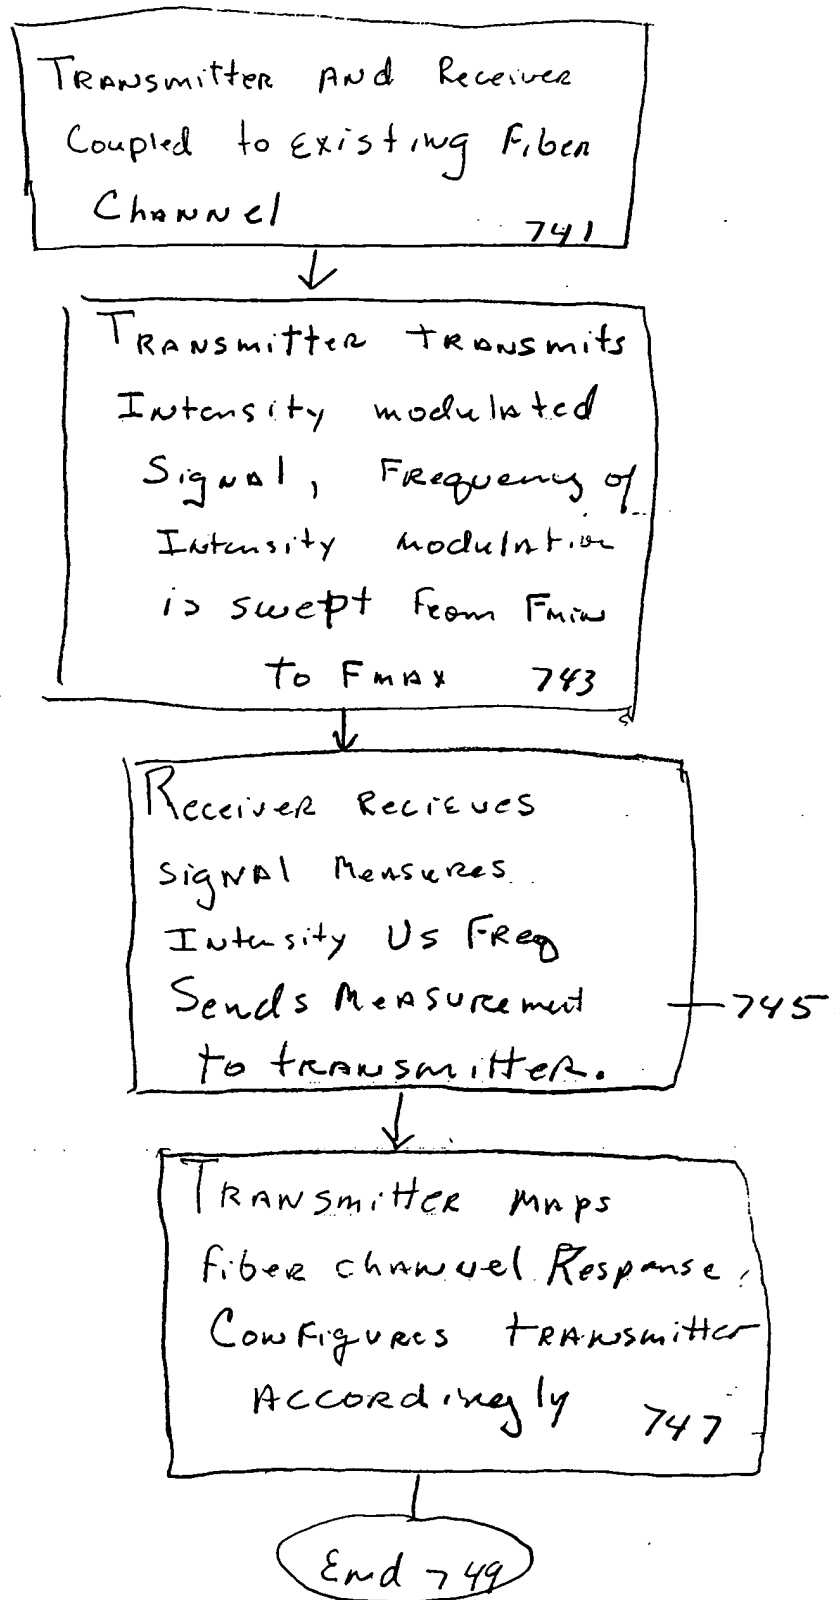 Transmitter and Receiver
Coupled to Existing Fiber
Channel
741
Transmitter transmits
Intensity modulated
Signal, Frequency of
Intensity modulation
is swept From Fmin
to Fmax 743
Receiver Recieves
signal Measures
Intensity Vs Freq
Sends Measurement
to transmitter.
745
Transmitter Maps
fiber channel Response,
Configures transmitter
Accordingly
747
End 749